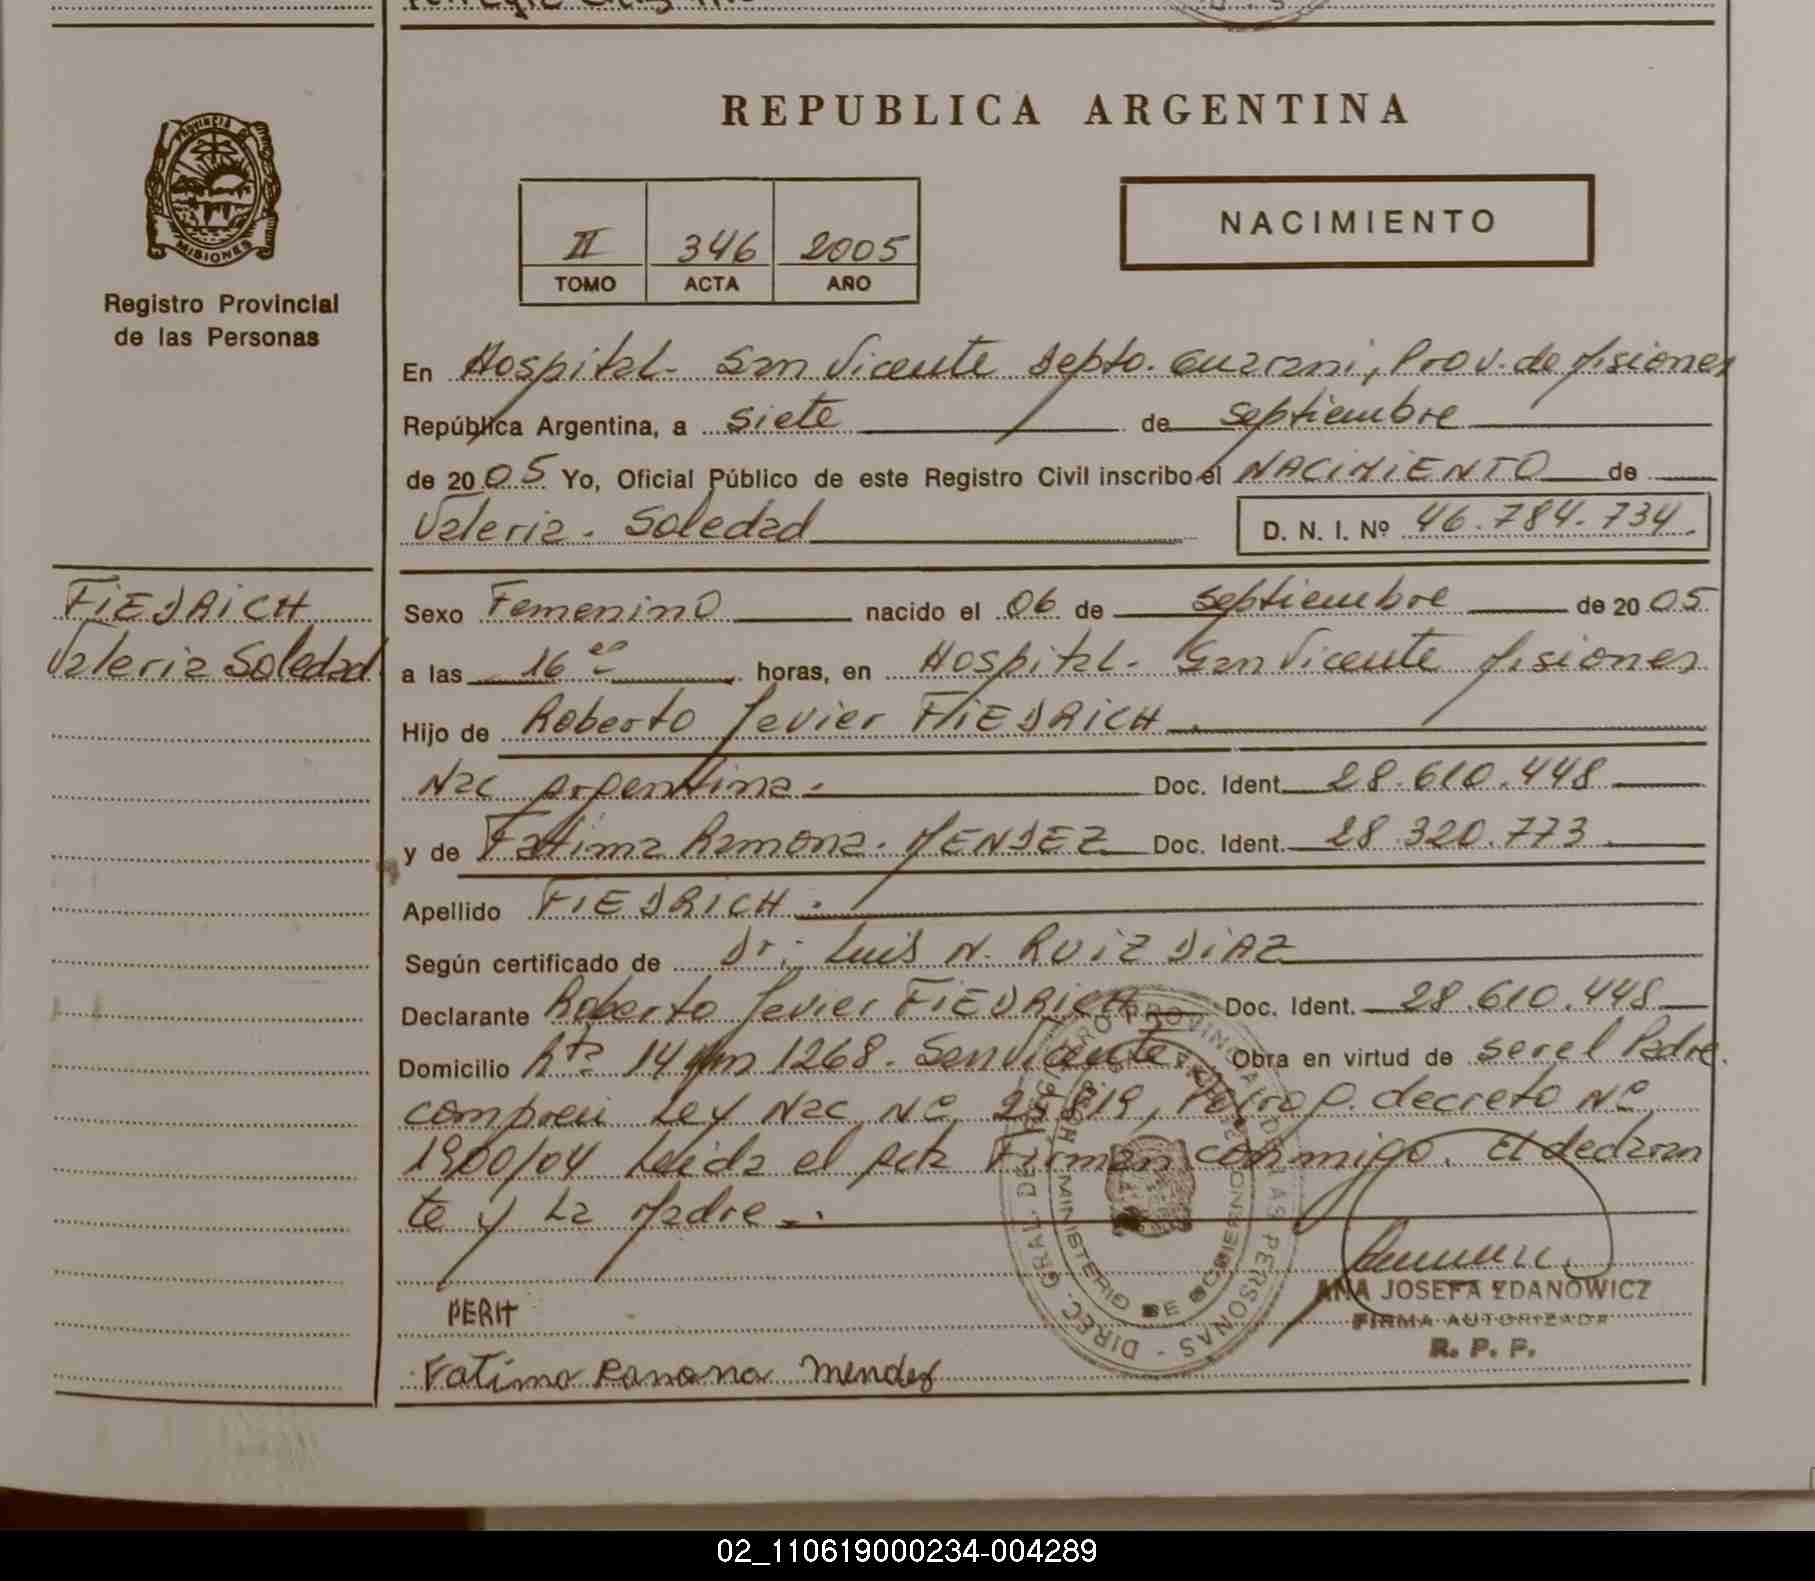 REPUBLICA ARGENTINA
PROVINCIA DE
MISIONES
Registro Provincial
de las Personas
II 346 2005
TOMO ACTA AÑO
NACIMIENTO
En Hospital - San Vicente Depto. Guarani, Prov. de Misiones
República Argentina, a siete de septiembre
de 2005 Yo, Oficial Público de este Registro Civil inscribo el NACIMIENTO de
Valeria - Soledad D. N. I. Nº 46.784.734.
FIEDRICH
Valeria Soledad
Sexo Femenino nacido el 06 de septiembre de 2005
a las 16 horas, en Hospital - San Vicente Misiones
Hijo de Roberto Javier FIEDRICH
Nac Argentina. Doc. Ident. 28.610.448
y de Fatima Ramona - MENDEZ Doc. Ident. 28.320.773
Apellido FIEDRICH.
Según certificado de Dr: Luis N. RUIZ DIAZ
Declarante Roberto Javier FIEDRICH Doc. Ident. 28.610.448
Domicilio Rta 14 Km 1268 - San Vicente Obra en virtud de ser el Padre.
Ley Nac Nº 25819, decreto Nº
1900/04 Leida el acta Firman conmigo. El declaran
te y La Madre.
REGISTRO PROVINCIAL DE LAS PERSONAS - DIREC. GRAL. DE
MINISTERIO DE GOBIERNO
ANA JOSEFA ZDANOWICZ
FIRMA AUTORIZADA
R. P. P.
Fatima Ramona Mendez
02_110619000234-004289